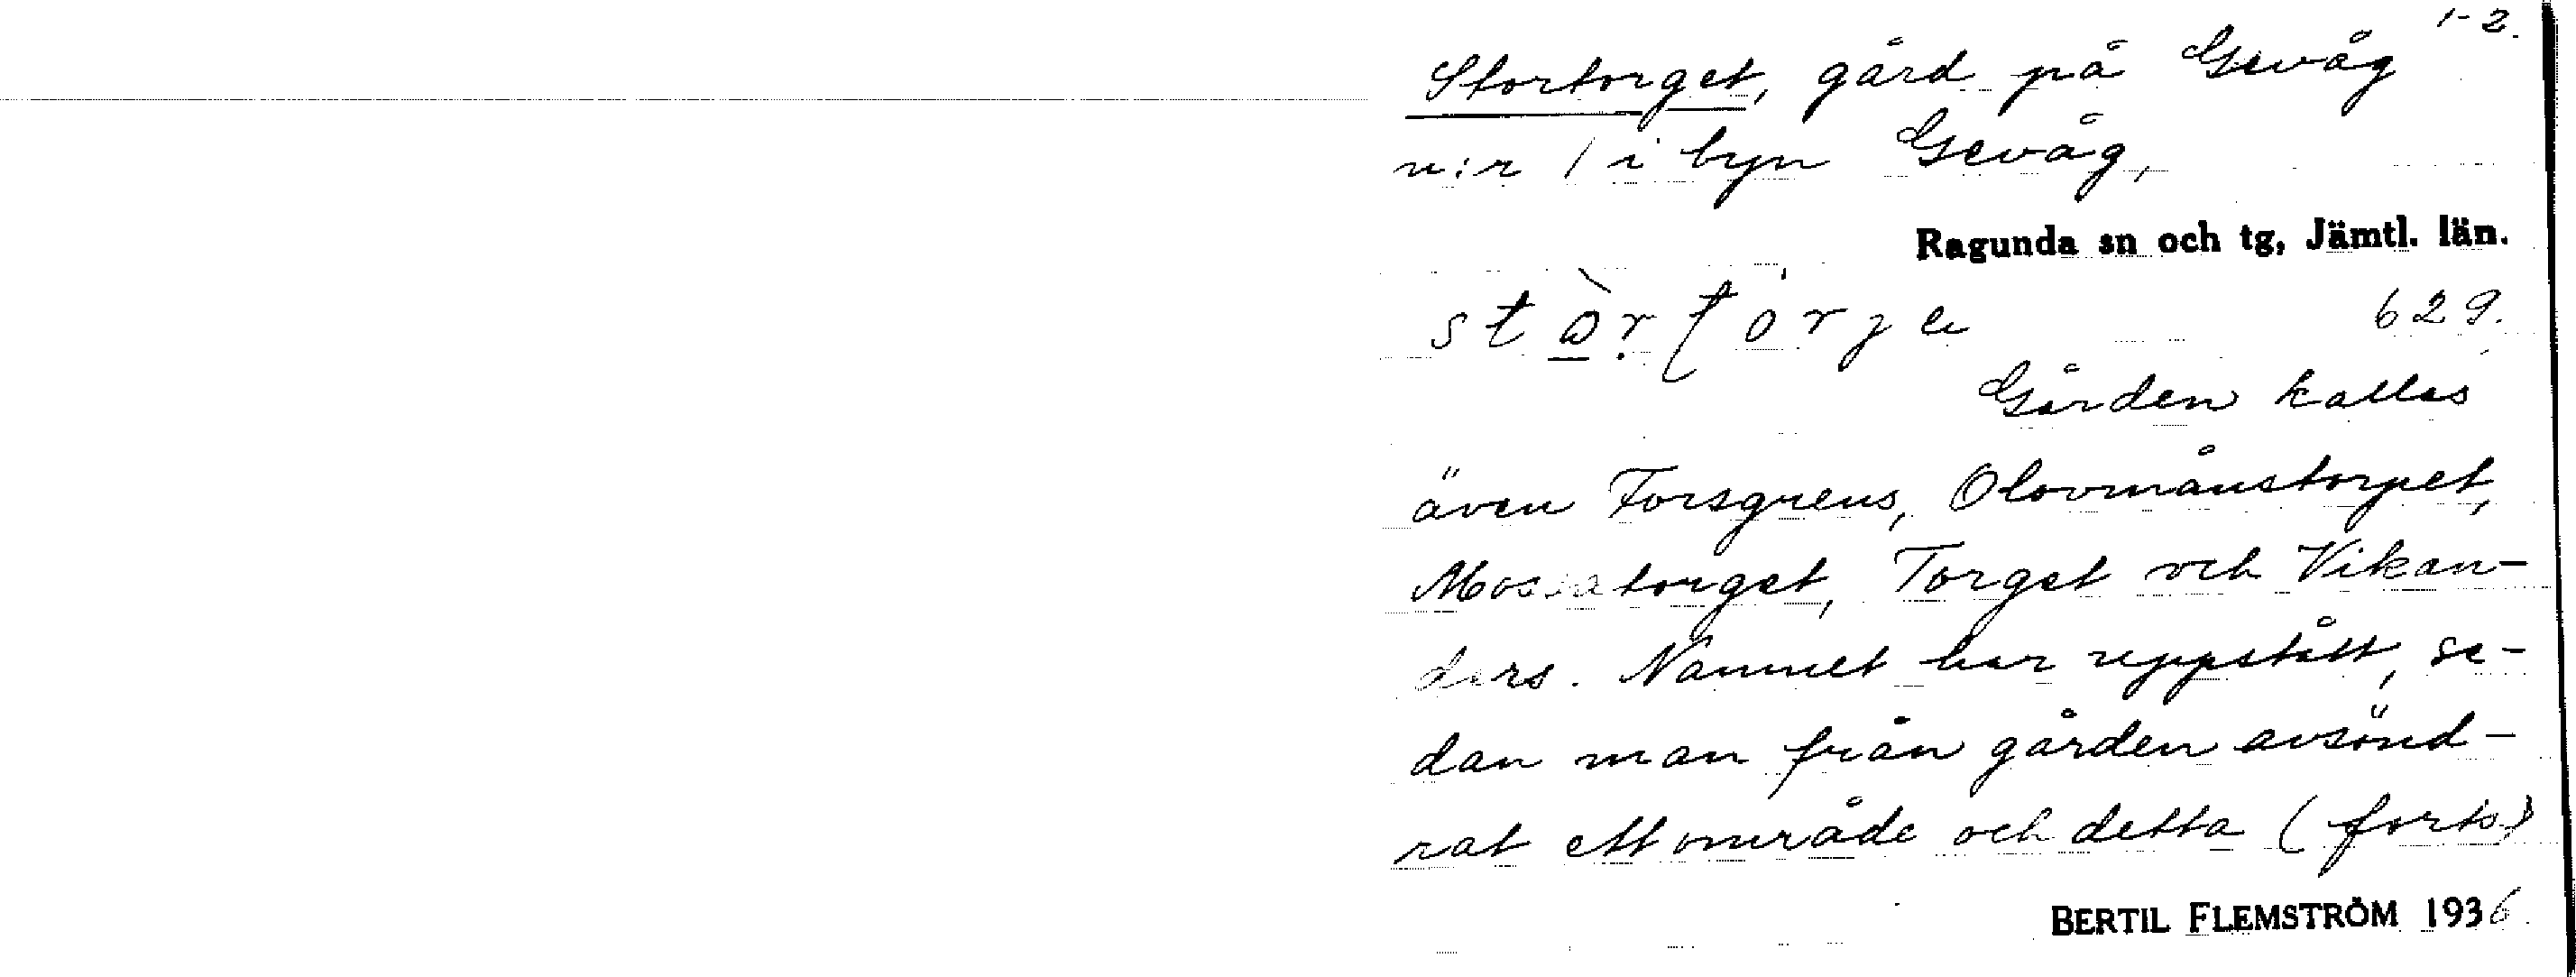 1-2.
Stortorget, gård på Gevåg
n:r 1 i byn Gevåg,
Ragunda sn och tg, Jämtl. län.
629.
Gården kallas
även Forsgrens, Olovmånstorpet,
torget, Torget och Vikan-
ders. Namnet har uppstått, se-
dan man från gården avsönd-
rat ett område och detta (forts.)
BERTIL FLEMSTRÖM 1936.